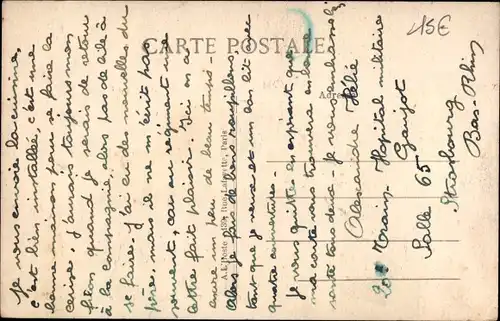 45€
CARTE POSTALE
Je vous envoie la cuisine,
c'est bien installée, c'est une
bonne maison pour se faire la
cerise. J'aurais toujours mon
filon quand je serais de retour
à la compagnie, alors pas de bile à
se faire. J'ai eu des nouvelles du
père, mais il ne m'écrit pas
souvent, car au régiment une
lettre fait plaisir. Ici on a
encore un peu de beau temps.
Alors je fais de bons roupillons
tant que je veux et un bon lit avec
quatre couvertures.
Je vous quitte en espérant que
ma carte vous trouvera en bonne
santé tous deux. Je vous embrasse
Alexandre Hélie
20e Train, Hôpital militaire
Gaujot
Salle 65
Strasbourg
Bas-Rhin
Rue Lafayette, Paris